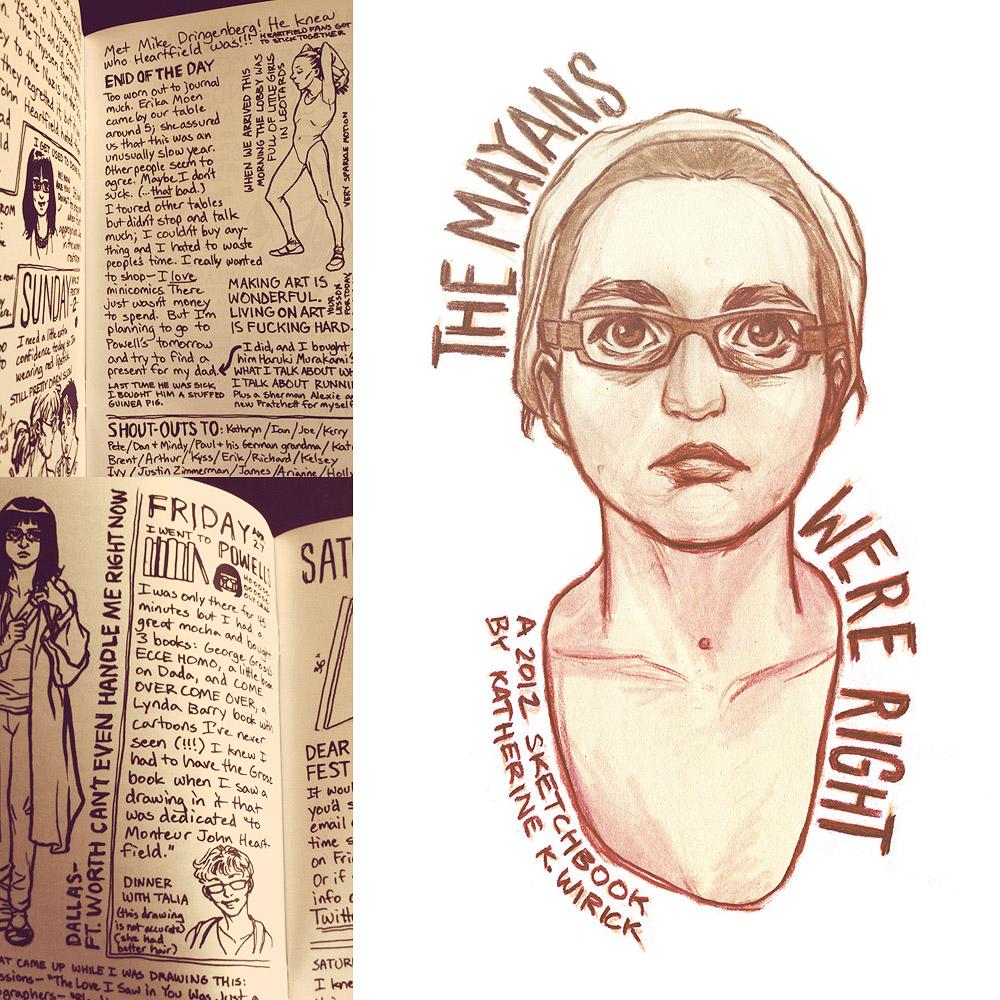 Met Mike Dringenberg! He knew
who Heartfield was!!!
HEARTFIELD FANS GOT
TO STICK TOGETHER
END OF THE DAY
Too worn out to journal
much. Erika Moen
came by our table
around 5; she assured
us that this was an
unusually slow year.
Other people seem to
agree. Maybe I don't
suck. (...that bad.)
I toured other tables
but didn't stop and talk
much; I couldn't buy any-
thing and I hated to waste
people's time. I really wanted
to shop—I love
minicomics. There
just wasn't money
to spend. But I'm
planning to go to
Powell's tomorrow
and try to find a
present for my dad.
LAST TIME HE WAS SICK,
I BOUGHT HIM A STUFFED
GUINEA PIG.
WHEN WE ARRIVED THIS
MORNING THE LOBBY WAS
FULL OF LITTLE GIRLS
IN LEOTARDS
VERY SPARKLE MOTION
MAKING ART IS
WONDERFUL.
LIVING ON ART
IS FUCKING HARD.
YOUR
LESSON
FOR TODAY
I did, and I bought
him Haruki Murakami's
WHAT I TALK ABOUT
I TALK ABOUT
Plus a Sherman Alexie
new Pratchett for myself
SHOUT-OUTS TO: Kathryn/Ian/Joe/Kerry
Pete/Dan + Mindy/Paul + his German grandma/
Brent/Arthur/Kyss/Erik/Richard/Kelsey
Ivy/Justin Zimmerman/James/Arianne/Holly
to the Nazis in the
they regretted it, but
John Heartfield
SUNDAY
I need a little extra
confidence today so I'm
wearing red lipstick.
STILL PRETTY DARN SLOW
DALLAS-
FT. WORTH CAN'T EVEN HANDLE ME RIGHT NOW
FRIDAY
27
I WENT TO
POWELL'S
I was only there for 45
minutes but I had a
great mocha and bought
3 books: George Grosz's
ECCE HOMO, a little book
on Dada, and COME
OVER COME OVER, a
Lynda Barry book with
cartoons I've never
seen (!!!) I knew I
had to have the Grosz
book when I saw a
drawing in it that
was dedicated "to
Monteur John Heart-
field."
DINNER
WITH TALIA
(this drawing
is not accurate)
(she had
better hair)
CAME UP WHILE I WAS DRAWING THIS:
"The Love I Saw in You Was Just a
SAT
DEAR
FEST
It
you'd
email
time
on Fri
Or if
info
SATUR
I
THE MAYANS
WERE RIGHT
A 2012 SKETCHBOOK
BY KATHERINE K. WIRICK